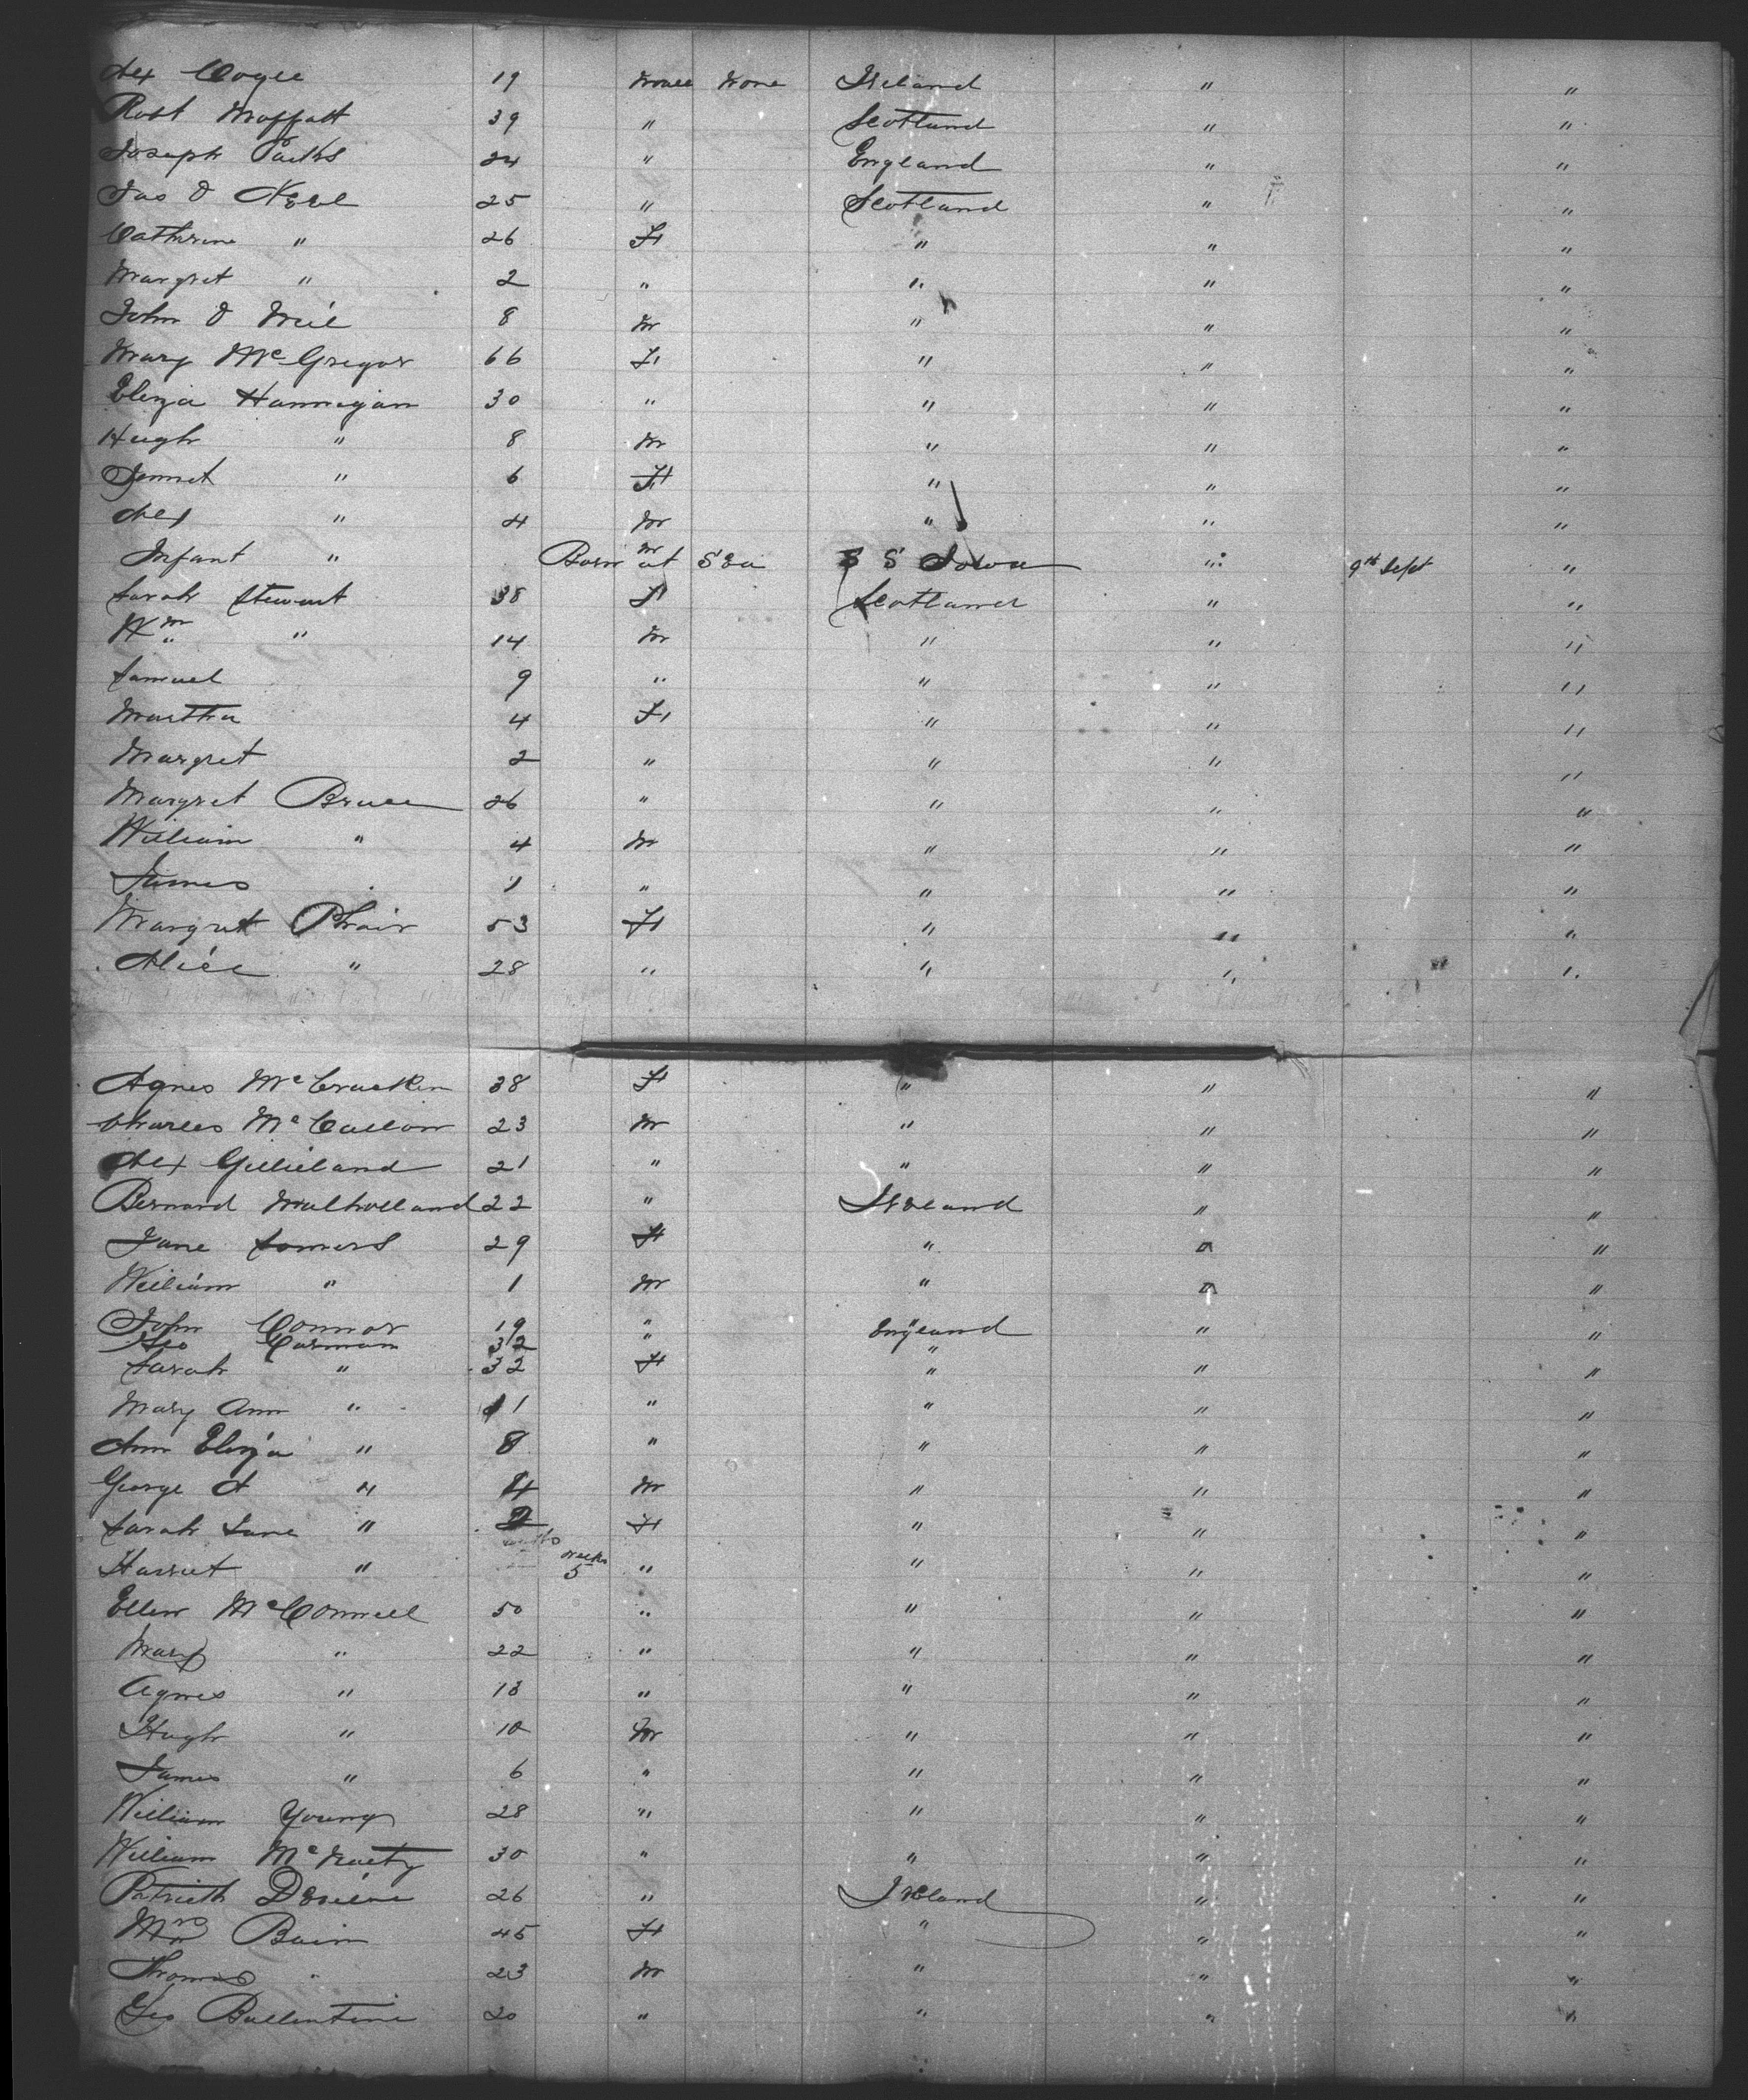 Alex Coyle 19 Male None Ireland " "
Robt Moffatt 39 " Scotland " "
Joseph Parks 24 " England " "
Jas O Neil 25 " Scotland " "
Catherine " 26 F " " "
Margret " 2 " " " "
John O Neil 8 M " " "
Mary McGregor 66 F " " "
Eliza Hannigan 30 " " " "
Hugh " 8 M " " "
Jannet " 6 F " " "
Alex " 4 M " " "
Infant " Born M at Sea S S Iowa " 9th Sept "
Sarah Stewart 38 F Scotland " "
Wm " 14 M " " "
Samuel 9 " " " "
Martha 4 F " " "
Margret 2 " " " "
Margret Bruce 26 " " " "
William " 4 M " " "
James 1 " " " "
Margret Phair 53 F " " "
Alice " 28 " " " "
Agnes McCracken 38 F " " "
Charles McCallow 23 M " " "
Alex Gilliland 21 " " " "
Bernard Mulholland 22 " Ireland " "
Jane Somers 29 F " " "
William " 1 M " " "
John Connor 19 " England " "
Geo Carman 32 " "
Sarah " 32 F " " "
Mary Ann " 11 " " " "
Ann Eliza " 8 " " " "
George A " 4 M " " "
Sarah Jane " 2 F " " "
Harriet " weeks 5 " " " "
Ellen McConnell 50 " " " "
Mary " 22 " " " "
Agnes " 13 " " " "
Hugh " 10 M " " "
James " 6 " " " "
William Young 28 " " " "
William McNulty 30 " " " "
Patrick Devine 26 " Ireland " "
Mrs Bain 45 F " " "
Thomas " 23 M " " "
Geo Ballentine 20 " " " "